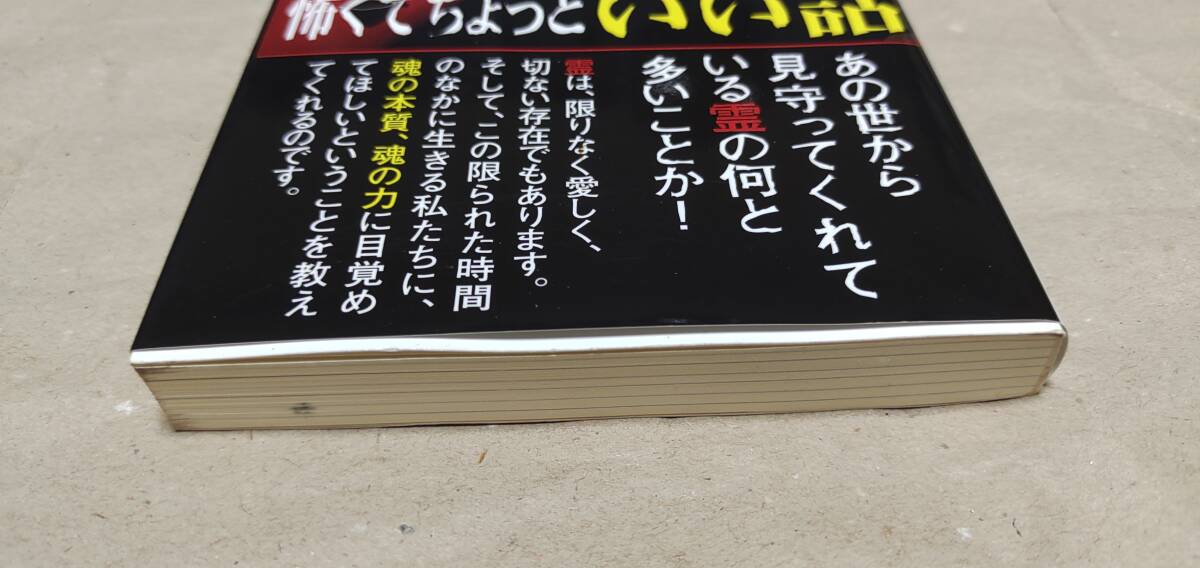 怖くてちょっといい話
あの世から
見守ってくれて
いる霊の何と
多いことか！
霊は、限りなく愛しく、
切ない存在でもあります。
そして、この限られた時間
のなかに生きる私たちに、
魂の本質、魂の力に目覚め
てほしいということを教え
てくれるのです。